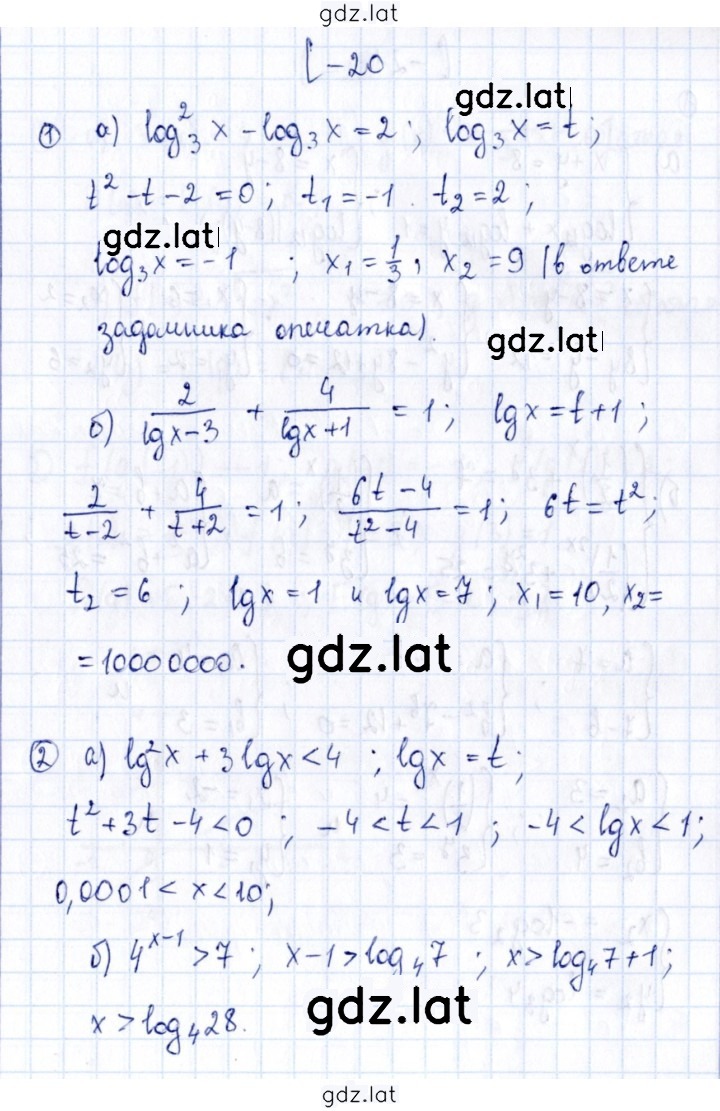 gdz.lat
С-20
gdz.lat
① а) log₃² x - log₃ x = 2 ; log₃ x = t ;
t² - t - 2 = 0 ; t₁ = -1 . t₂ = 2 ;
gdz.lat
log₃ x = -1 ; x₁ = 1/3 , x₂ = 9 (в ответе
задачника опечатка).
gdz.lat
б) 2/(lg x - 3) + 4/(lg x + 1) = 1 ; lg x = t + 1 ;
2/(t - 2) + 4/(t + 2) = 1 ; (6t - 4)/(t² - 4) = 1 ; 6t = t² ;
t₂ = 6 ; lg x = 1 и lg x = 7 ; x₁ = 10, x₂ =
= 10000000.
gdz.lat
② а) lg² x + 3 lg x < 4 ; lg x = t ;
t² + 3t - 4 < 0 ; -4 < t < 1 ; -4 < lg x < 1 ;
0,0001 < x < 10 ;
б) 4ˣ⁻¹ > 7 ; x - 1 > log₄ 7 ; x > log₄ 7 + 1 ;
x > log₄ 28.
gdz.lat
gdz.lat